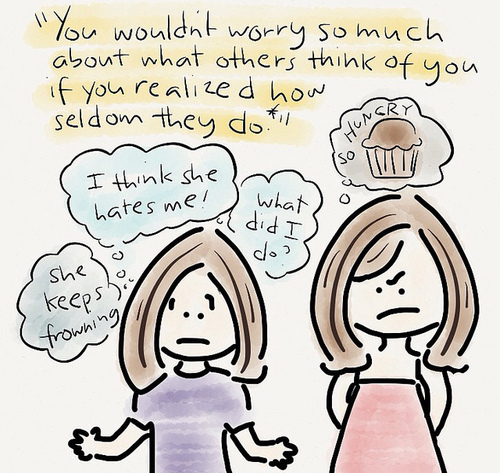 "You wouldn't worry so much
about what others think of you
if you realized how
seldom they do.*"
SO HUNGRY
I think she
hates me!
what
did I
do?
she
keeps
frowning